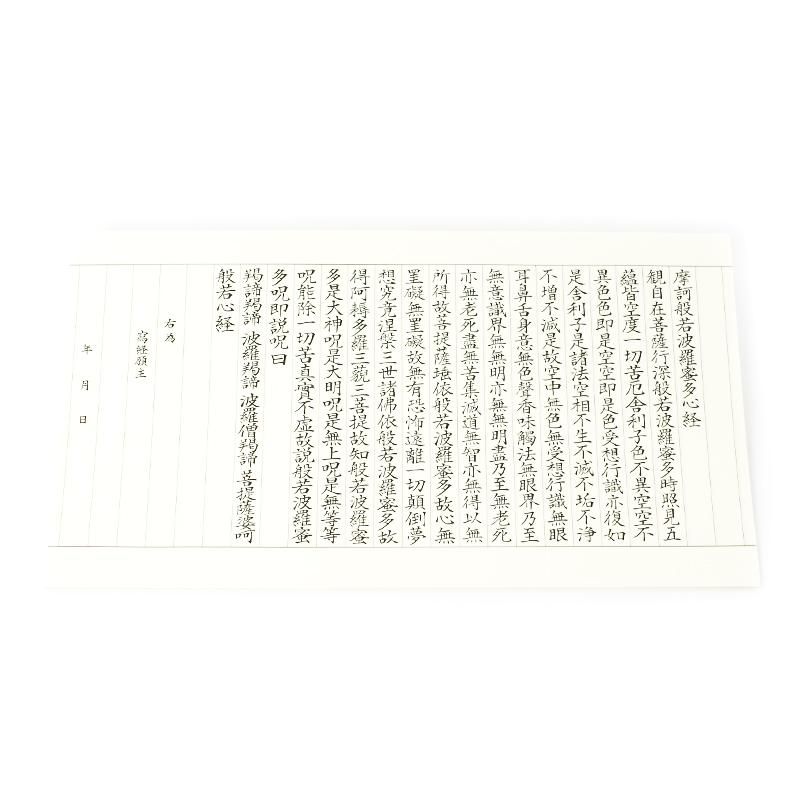 摩訶般若波羅蜜多心経
観自在菩薩行深般若波羅蜜多時照見五
蘊皆空度一切苦厄舎利子色不異空空不
異色色即是空空即是色受想行識亦復如
是舎利子是諸法空相不生不滅不垢不浄
不増不減是故空中無色無受想行識無眼
耳鼻舌身意無色聲香味觸法無眼界乃至
無意識界無無明亦無無明盡乃至無老死
亦無老死盡無苦集滅道無智亦無得以無
所得故菩提薩埵依般若波羅蜜多故心無
罣礙無罣礙故無有恐怖遠離一切顛倒夢
想究竟涅槃三世諸佛依般若波羅蜜多故
得阿耨多羅三藐三菩提故知般若波羅蜜
多是大神呪是大明呪是無上呪是無等等
呪能除一切苦真實不虚故説般若波羅蜜
多呪即説呪曰
羯諦羯諦 波羅羯諦 波羅僧羯諦 菩提薩婆呵
般若心経
右為
寫経願主
年 月 日